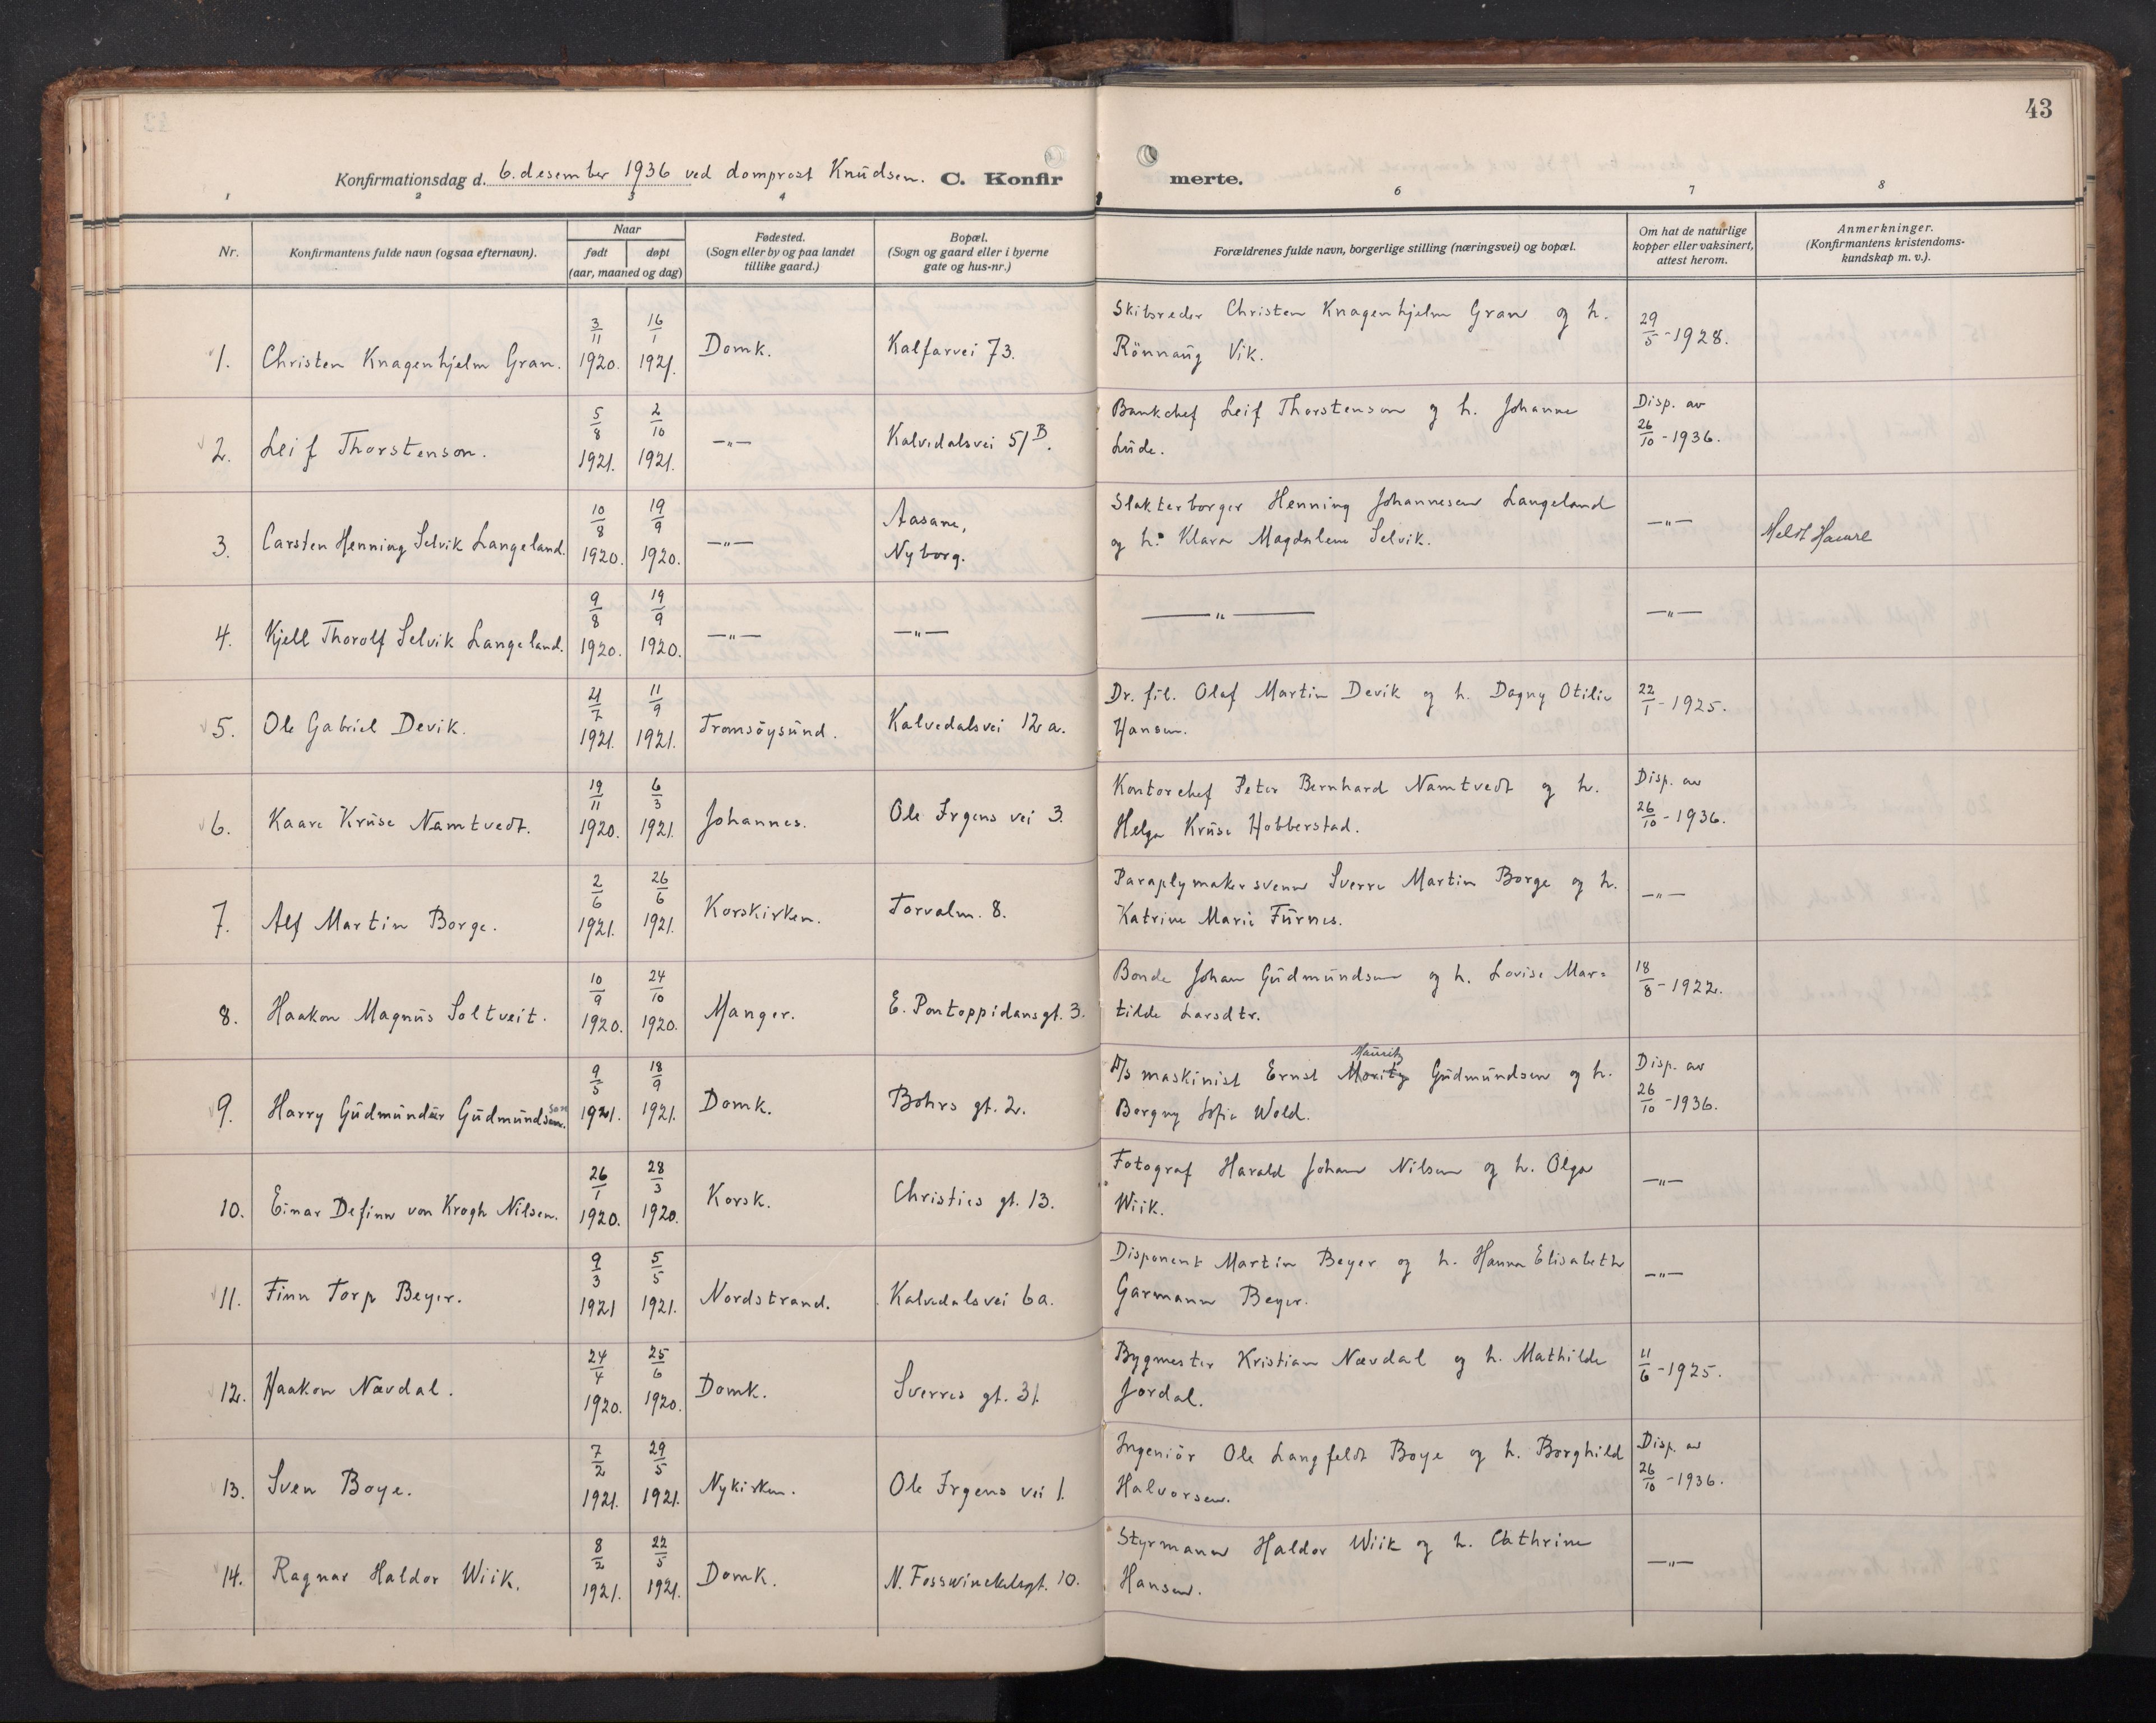 43
Konfirmationsdag d. 6. desember 1936 ved domprost Knudsen. C. Konfirmerte.
1 2 3 4 6 7 8
Nr. Konfirmantens fulde navn (ogsaa efternavn). Naar født døpt (aar, maaned og dag) Fødested. (Sogn eller by og paa landet tillike gaard.) Bopæl. (Sogn og gaard eller i byerne gate og hus-nr.) Forældrenes fulde navn, borgerlige stilling (næringsvei) og bopæl. Om hat de naturlige kopper eller vaksinert, attest herom. Anmerkninger. (Konfirmantens kristendoms-kundskap m. v.).
1. Christen Knagenhjelm Gran. 3/11 1920. 16/1 1921. Domk. Kalfarvei 73. Skibsreder Christen Knagenhjelm Gran og h. 29/5 - 1928.
Rönnaug Vik.
2. Leif Thorstenson. 5/8 1921. 2/10 1921. —"— Kalvedalsvei 51B. Bankchef Leif Thorstenson og h. Johanne Disp. av 26/10 - 1936.
Lude.
3. Carsten Henning Selvik Langeland. 10/8 1920. 19/9 1920. —"— Aasane, Nyborg. Slakterborger Henning Johannesen Langeland —"—
og h. Klara Magdalene Selvik.
4. Kjell Thorolf Selvik Langeland. 9/8 1920. 19/9 1920. —"— —"— —"— —"—
5. Ole Gabriel Devik. 21/7 1921. 11/9 1921. Tromsöysund. Kalvedalsvei 12a. Dr. fil. Olaf Martin Devik og h. Dagny Otilie 22/1 - 1925.
Hansen.
6. Kaare Kruse Namtvedt. 19/11 1920. 6/3 1921. Johannes. Ole Irgens vei 3. Kontorchef Peter Bernhard Namtvedt og h. Disp. av 26/10 - 1936.
Helga Kruse Hobberstad.
7. Alf Martin Borge. 2/6 1921. 26/6 1921. Korskirken. Torvalm. 8. Paraplymakersvenn Sverre Martin Borge og h. —"—
Katrine Marie Furnes.
8. Haakon Magnus Soltveit. 10/9 1920. 24/10 1920. Manger. E. Pontoppidansgt. 3. Bonde Johan Gudmundsen og h. Lovise Mar= 18/8 - 1922.
tilde Larsdtr.
9. Harry Gudmunder Gudmundson. 9/5 1921. 18/9 1921. Domk. Bohrs gt. 2. D/s maskinist Ernst Moritz Mauritz Gudmundsen og h. Disp. av 26/10 - 1936.
Borgny Sofie Wold.
10. Einar Definn von Krogh Nilsen. 26/1 1920. 28/3 1920. Korsk. Christies gt. 13. Fotograf Harald Johan Nilsen og h. Olga —"—
Wiik.
11. Finn Torp Beyer. 9/3 1921 5/5 1921. Nordstrand. Kalvedalsvei 6a. Disponent Martin Beyer og h. Hanna Elisabeth —"—
Garmann Beyer.
12. Haakon Nævdal. 24/4 1920. 25/6 1920. Domk. Sverres gt. 31. Bygmester Kristian Nævdal og h. Mathilde 11/6 - 1925.
Jordal.
13. Sven Boye. 7/2 1921. 29/5 1921. Nykirken. Ole Irgens vei 1. Ingeniör Ole Langfeldt Boye og h. Borghild Disp. av 26/10 - 1936.
Halvorsen.
14. Ragnar Haldor Wiik. 8/2 1921. 22/5 1921. Domk. N. Fosswinckelsgt. 10. Styrmann Haldor Wiik og h. Cathrine —"—
Hansen.